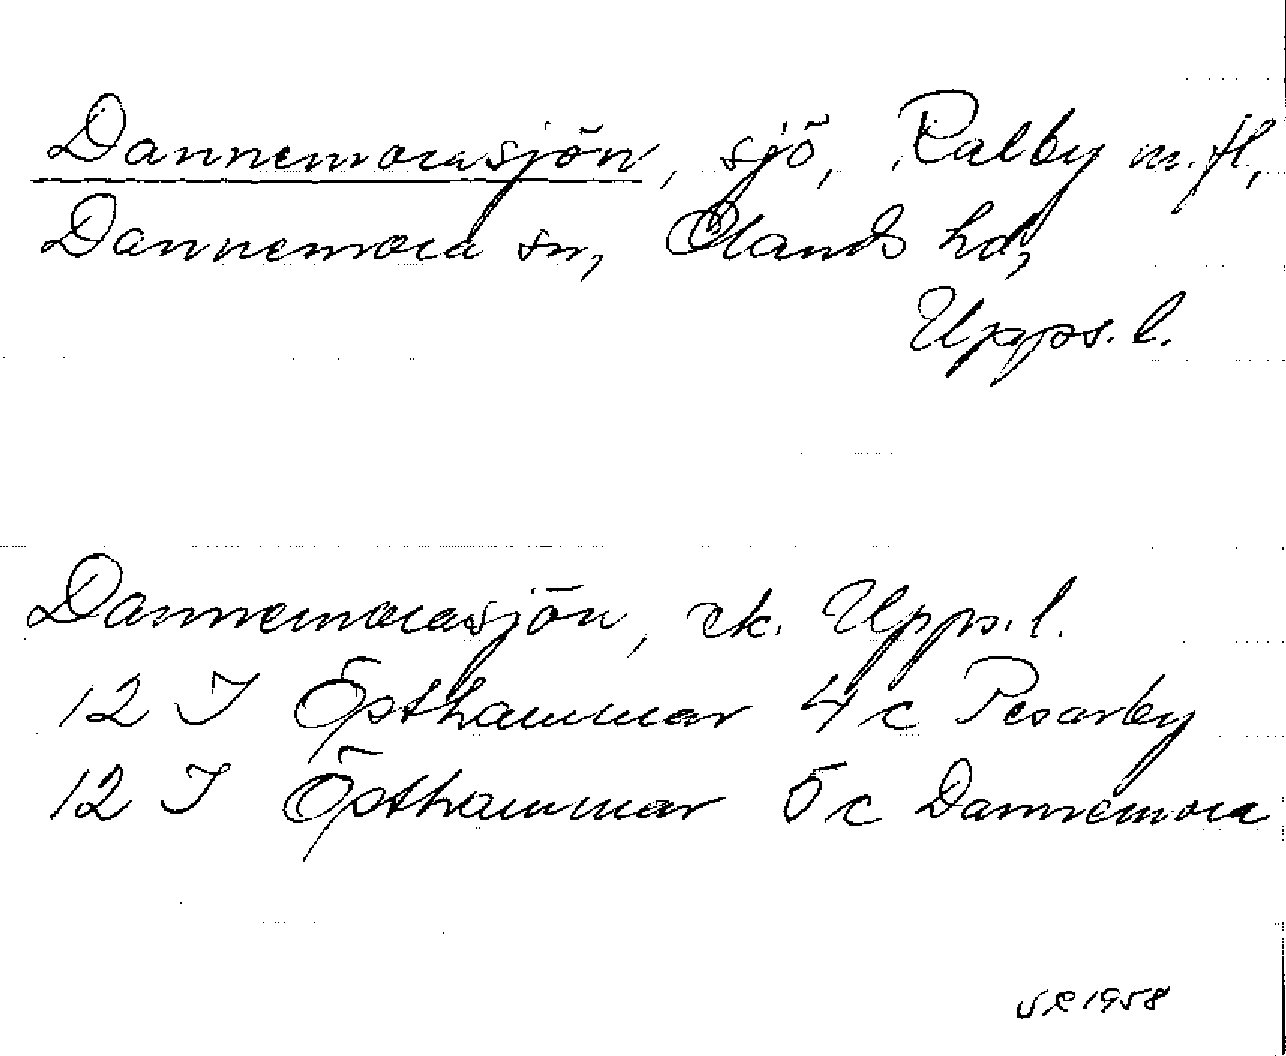 Dannemorasjön, sjö, Ralby m.fl,
Dannemora sn, Olands hd,
Upps. l.
Dannemorasjön, ek. Upps. l.
12 I Östhammar 4 c Pesarby
12 I Östhammar 5 c Dannemora
1958